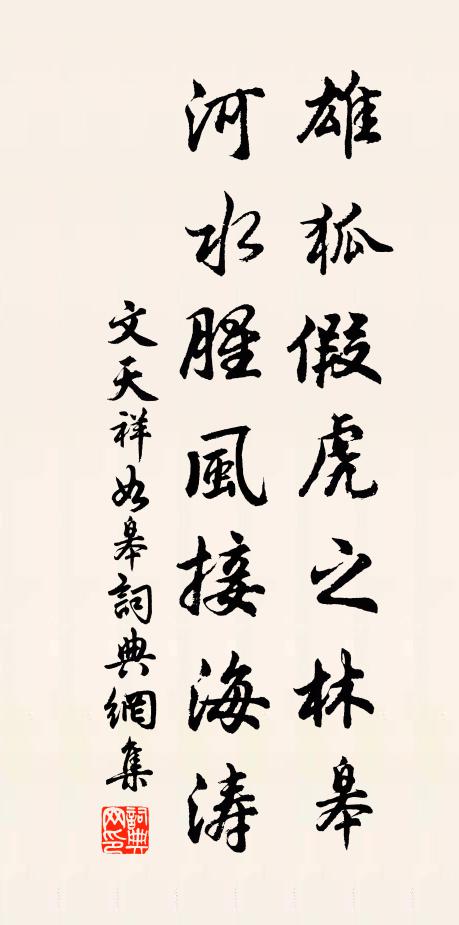 雄狐假虎之林皋
河水腥風接海濤
文天祥如皋詞典網集
詞典網印